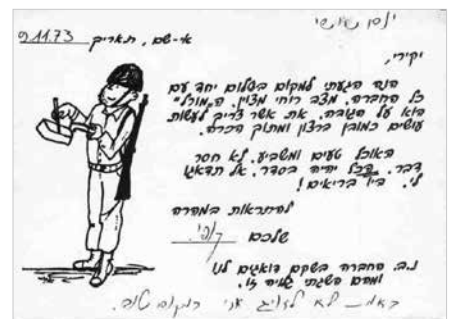 אי-שם, תאריך 9.11.73
יקירי,
הנה הגעתי למקום בשלום יחד עם
כל החברה. מצב רוחי מצוין. ה"מורל"
הוא על הגובה. את אשר צריך לעשות
עושים כמובן ברצון ומתוך הכרה.
האוכל טעים ומשביע. לא חסר
דבר. הכל יהיה בסדר. אל תדאגו
לי. היו בריאים!
להתראות במהרה
שלכם
נ.ב. החברה בשקם דואגים לנו
ומהם השגתי גלויה זו.
באמת לא לדאוג אני במקום טוב.